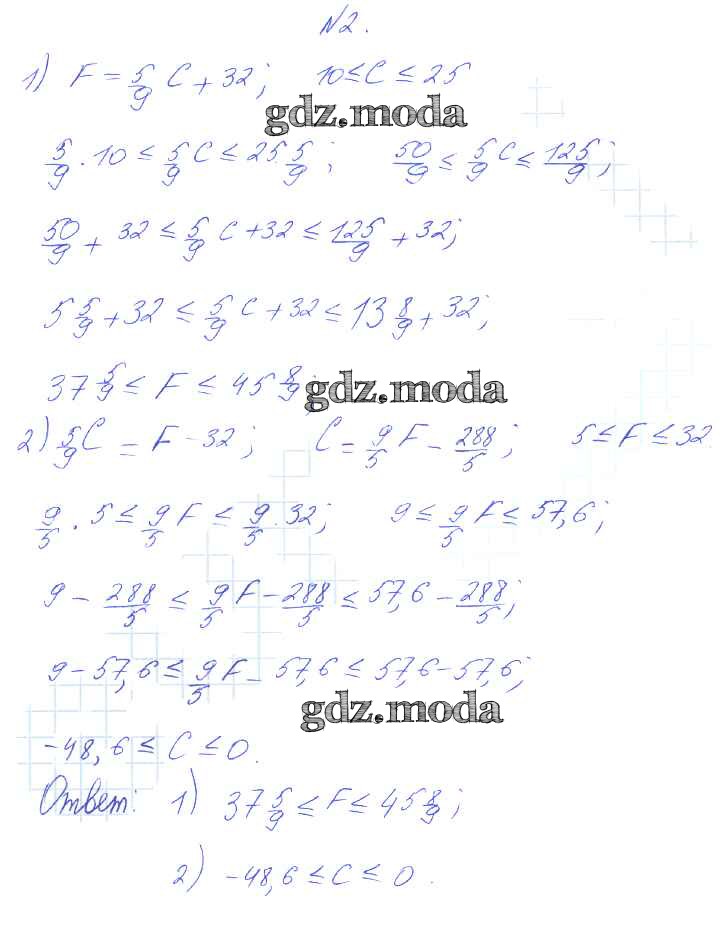 N2.
1) F = 5/9 C + 32; 10 ≤ C ≤ 25
gdz.moda
5/9 · 10 ≤ 5/9 C ≤ 25 · 5/9; 50/9 ≤ 5/9 C ≤ 125/9;
50/9 + 32 ≤ 5/9 C + 32 ≤ 125/9 + 32;
5 5/9 + 32 ≤ 5/9 C + 32 ≤ 13 8/9 + 32;
37 5/9 ≤ F ≤ 45 8/9; gdz.moda
2) 5/9 C = F - 32; C = 9/5 F - 288/5; 5 ≤ F ≤ 32
9/5 · 5 ≤ 9/5 F ≤ 9/5 · 32; 9 ≤ 9/5 F ≤ 57,6;
9 - 288/5 ≤ 9/5 F - 288/5 ≤ 57,6 - 288/5;
9 - 57,6 ≤ 9/5 F - 57,6 ≤ 57,6 - 57,6;
gdz.moda
-48,6 ≤ C ≤ 0.
Ответ: 1) 37 5/9 ≤ F ≤ 45 8/9;
2) -48,6 ≤ C ≤ 0.